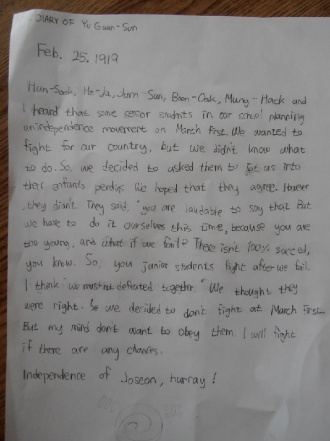 DIARY OF Yu Gwan-Sun
Feb. 25. 1919
Hun-Sook, He-Ja, Jom-Sun, Boon-Ock, Myung-Hack and
I heard that some senior students in our school planning
an independence movement on March First. We wanted to
fight for our country, but we didn't know what
to do. So, we decided to asked them to let us into
their enfants perdus. We hoped that they agree. However
they didn't. They said, "you are laudable to say that. But
we have to do it ourselves this time, because you are
too young, and what if we fail? There isn't 100% succed,
you know. So, you junior students fight after we fail.
I think we must not defeated together." We thought they
were right. So we decided to don't fight at March First.
But my mind don't want to obey them. I will fight
if there are any chances.
Independence of Joseon, hurray!